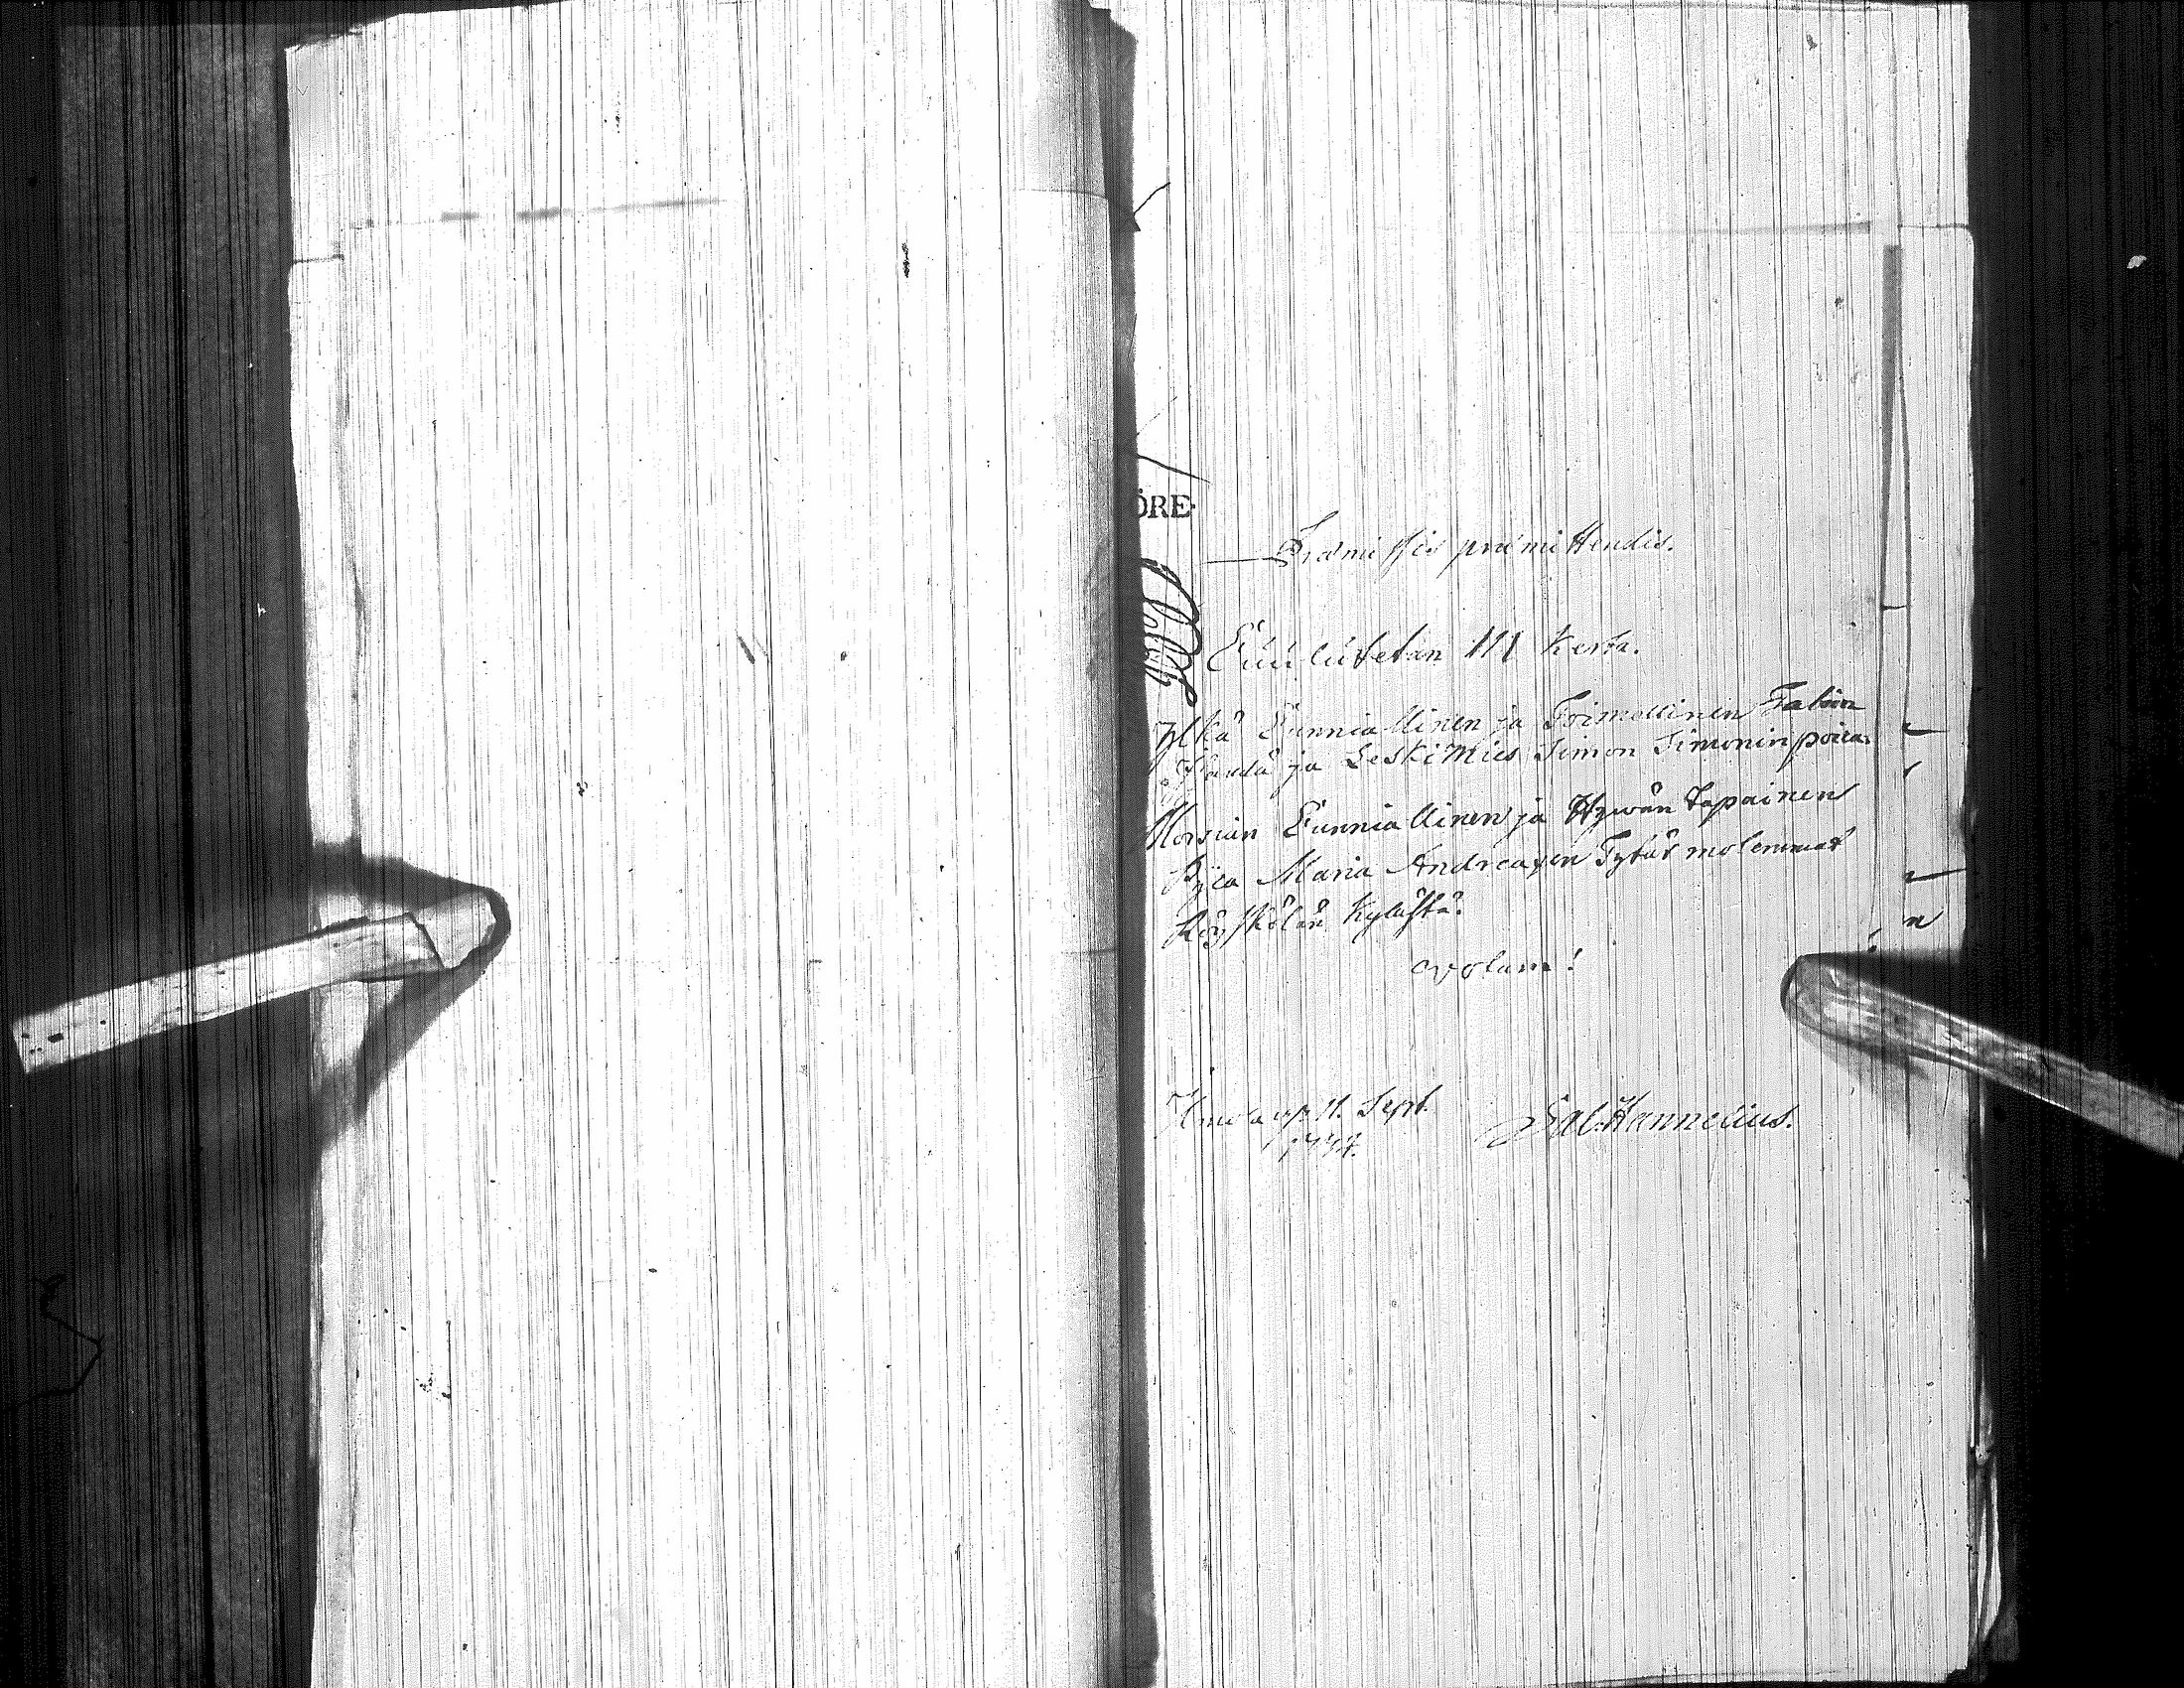 ÖRE
Præmissis præmittendis.
Cuulutetan III kerta.
Ylkä Cunniallinen ja Toimellinen Talon
Isändä ja Leskimies Simon Simonin poica
Morsian Cunniallinen ja Hywän Tapainen
Pijca Maria Andreaxen Tytär molemmat
Köyskölän Kylästä.
votum!
11. Sept.
Sal. Hannelius.